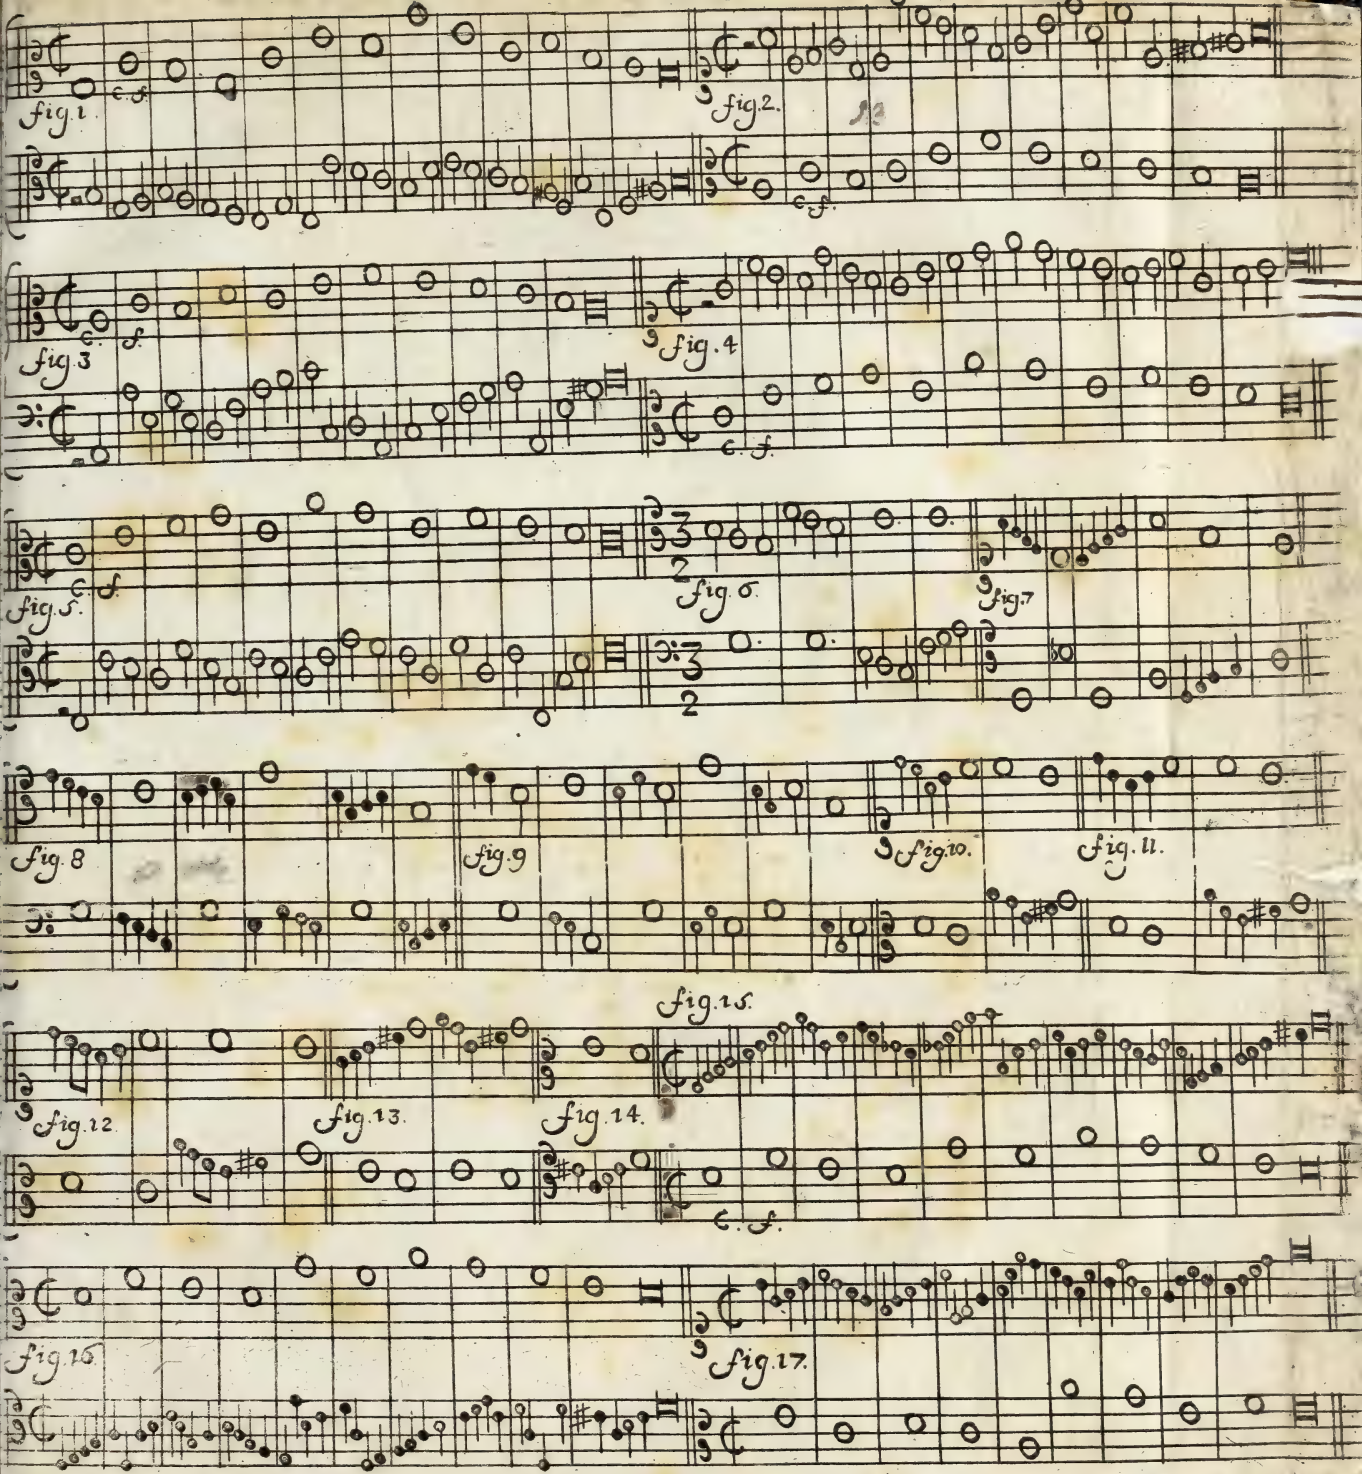 c. f.
fig.1.
fig.2.
c. f.
c. f.
fig.3
fig.4
c. f.
c. f.
fig.5.
3
2
fig.6.
fig.7
3
2
fig.8
fig.9
fig.10.
fig.11.
fig.15.
fig.12
fig.13.
fig.14.
c. f.
fig.16
fig.17.